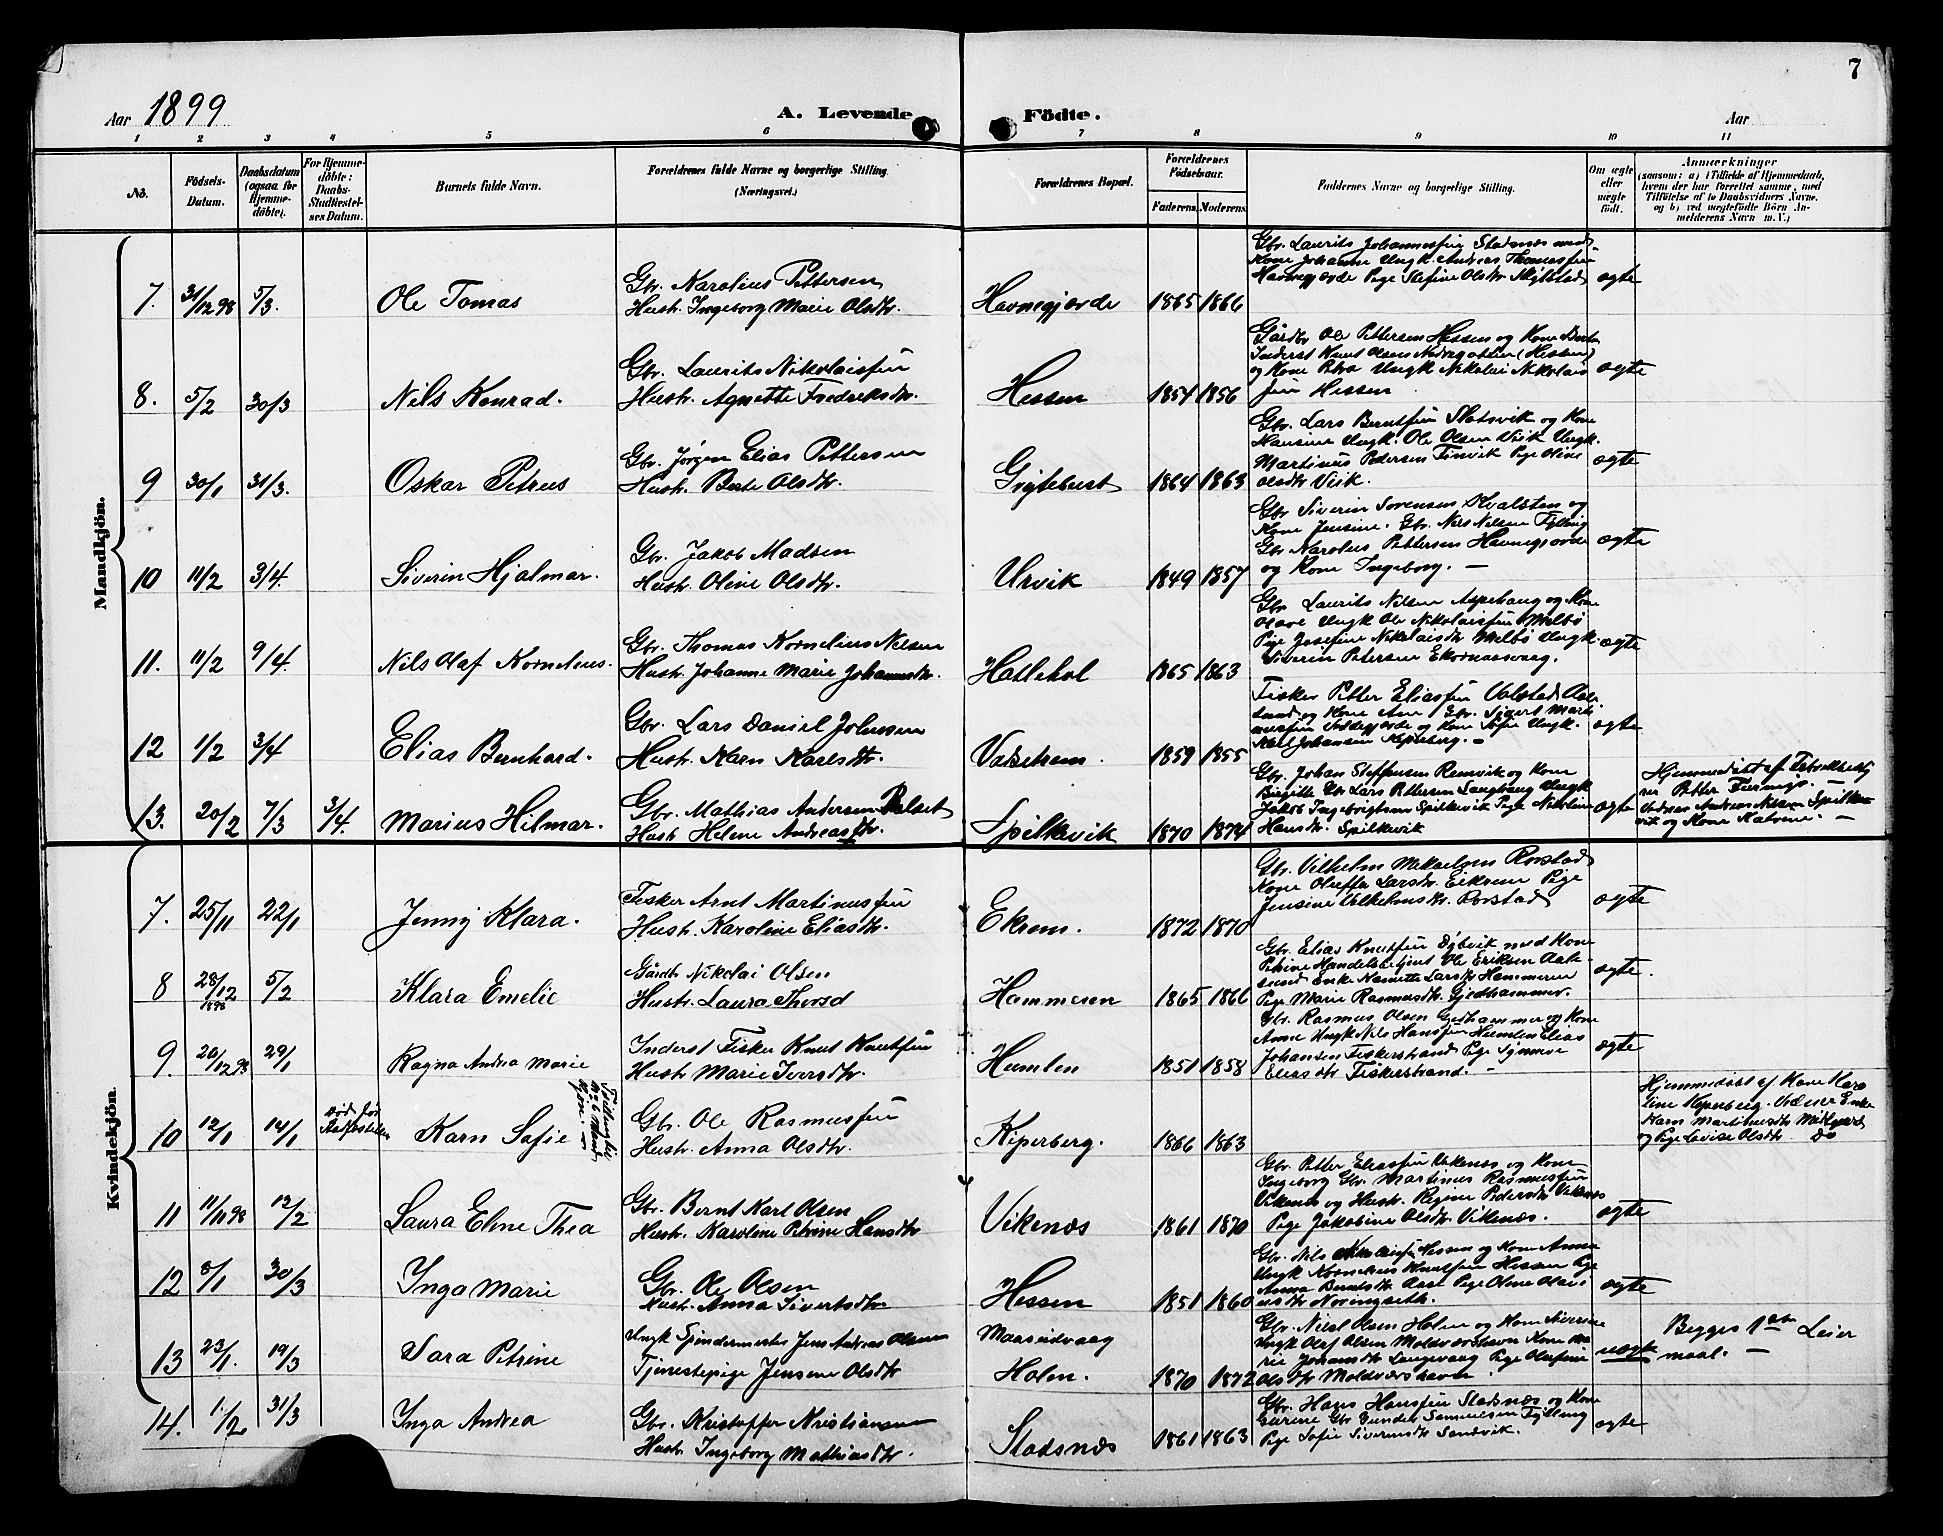 7
Aar 1899
A. Levende Födte.
Aar
1 2 3 4 5 6 7 8 9 10 11
No.
Födsels-Datum.
Daabsdatum (ogsaa for Hjemmedöbte).
For Hjemmedöbte: Daabs-Stadfæstelses Datum.
Barnets fulde Navn.
Forældrenes fulde Navne og borgerlige Stilling. (Næringsvei.)
Forældrenes Bopæl.
Forældrenes Födselsaar.
Faderens. Moderens.
Faddernes Navne og borgerlige Stilling.
Om ægte eller uægte født.
Anmærkninger
(saasom: a) i Tilfælde af Hjemmedaab, hvem der har forrettet samme, med Tilföielse af to Daabsvidners Navne. og b) ved uægtefödte Börn Anmelderens Navn m. V.)
Mandkjön.
7. 31/12 98 5/3. Ole Tomas
Gbr. Karolius Pettersen
Hustr. Ingeborg Marie Olsdtr.
Havnegjærde 1865 1866
Gbr. Laurits Johannessen Stadsnæs med
Kone Johanne Ungk. Andreas Thomassen
Havnegjærde Pige Stefine Olsdtr
ægte
8. 5/2 30/3 Nils Konrad.
Gbr. Laurits Nikolaissen
Hustr. Agnette Fredriksdtr.
Hessen 1854 1856
Gårdbr Ole Pettersen Hessen og Kone
Inderst Knut Olsen (Hessen)
og Kone Petra Ungk Nikolai Nikolais
sen Hessen
ægte
9 30/1 31/3. Oskar Petrus
Gbr. Jørgen Elias Pettersen
Hustr. Berte Olsdtr.
1864 1863
Gbr. Lars Berntsen Slotsvik og Kone
Hansine Ungk. Ole Olsen Vik Ungk.
Martinus Pedersen Pige Oline
Olsdtr Vik.
ægte
10 11/2 3/4. Siverin Hjalmar.
Gbr. Jakob Madsen
Hustr. Oline Olsdtr.
Urvik 1849 1857
Gbr Siverin Sørensen Kvalsten og
Kone Jensine. Gbr. Nils Nilsen Fylling
Gbr Karolus Pettersen Havnegjærde
og Kone Ingeborg. —
ægte
11. 11/2 9/4. Nils Olaf Kornelius.
Gbr. Thomas Kornelius Nilsen
Hustr. Johanne Marie Johannesdtr.
Hatlehol 1865 1863
Gbr Laurits Nilsen Aspehaug og Kone
Olave Ungk Ole Nikolaissen Melbø
Pige Josefine Nikolaisdtr Melbø Ungk.
Siverin Petersen
ægte
12 1/2 3/4 Elias Bernhard.
Gbr. Lars Daniel Johnsen
Hustr. Karn Karlsdtr.
1859 1855
Fisker Petter Eliassen Aale
sund og Kone Ane Gbr. Sivert Marti
nussen og Kone Sofie Ungk.
Karl Johansen Kiperberg. —
ægte
13. 20/2 7/3 3/4. Marius Hilmar.
Gbr. Mathias Andersen
Hustr Helene Andreasdtr.
Spilkevik 1870 1874
Gbr. Johan Steffensen Remvik og Kone
Birgitte Gbr Lars Pettersen Ungk
Jakob Ingebrigtsen Spilkevik Pige Nikoline
Hansdtr. Spilkevik
ægte
Hjemmedøbt af
Petter
Andreas Nilsen Spilke
vik og Kone Katrine. —
Kvindekjön.
7. 25/11 22/1 Jenny Klara.
Fisker Arnt Martinussen
Hustr. Karoline Eliasdtr.
Ekrem. 1872 1870
Gbr. Vilhelm Mikaelsen Rørstad
Kone Oleffa Larsdtr. Eikrem Pige
Jensine Vilhelmsdtr. Rørstad
ægte
8 28/12 1898 5/2 Klara Emelie
Gårdbr Nikolai Olsen
Hustr. Laura Thorsd
Hammeren 1865 1866
Gbr. Elias Knutsen Dybvik med Kone
Petrine Handelsbetjent Ole Eriksen Aale
sund Enke Nanette Larsdtr Hammeren
Pige Marie Rasmusdtr. Gjedhammer.
ægte.
9. 20/12 98 29/1 Ragna Andrea Marie
Inderst Fisker Knut Knutsen
Hustr Marie Iversdtr.
Humlen 1851 1858
Gbr. Rasmus Olsen Gjedhammer og Kone
Anne Ungk Nils Hanssen Humlen Elias
Johansen Fiskerstrand Pige Synneve
Eliasdtr Fiskerstrand. —
ægte
10 12/1 14/1 Død før Stadfæstelsen Karn Sofie
Tvilling til No 6 Mandkjøn. —
Gbr. Ole Rasmussen
Hustr. Anna Olsdtr.
Kiperberg. 1866 1863
Hjemmedøbt af Kone Karo
line Kiperberg. Vidner Enke
Karn Martinusdtr
og Pige Lovise Olsdtr. Do
11 11/11 98 12/2 Laura Eline Thea
Gbr. Bernt Karl Olsen
Hustr. Karoline Petrine Hansdtr
Vikenæs 1861 1870
Gbr. Petter Eliassen Vikenæs og Kone
Ingeborg Gbr. Martinus Rasmussen
Vikenæs og Hustr. Regine Pedersdtr Vikenæs
Pige Jakobine Olsdtr. Vikenæs.
ægte
12 8/1 30/3 Inga Marie
Gbr. Ole Olsen
Hustr. Anna Sivertsdtr.
Hessen 1851 1860
Gbr. Nils Hessen og Kone Anna
Ungk Kornelius Knutsen Hessen Pige
Anna Berntsdtr Aase Pige Oline Olaus
dtr
ægte
13 23/1. 19/3 Sara Petrine
Ungk Spindermester Jens Andreas Olsen
Tjenestepige Jensine Olsdtr
Maaseidvaag
Holen. 1870 1872
Gbr. Nils Olsen Holen og Kone Siverine
Ungk Olaf Olsen Moldværshavn Kone Ma
rie Johansdtr Langevaag Pige Olufine
Olsdtr Moldværshavn.
uægte
Begges 1ste Leier
maal. —
14. 1/2 31/3 Inga Andrea
Gbr. Kristoffer Kristiansen
Hustr. Ingeborg Mathiasdtr.
Stadsnæs 1861 1863
Gbr. Hans Hanssen Stadsnæs og Kone
Gurine Gbr Gunder Samuelsen Fylling
Pige Sofie Siverinsdtr Sandvik.
ægte